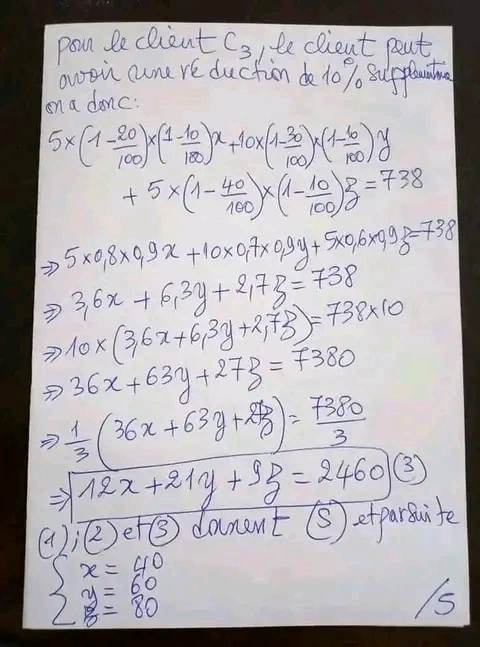 pour le client C₃, le client peut
avoir une réduction de 10% supplémentaire
on a donc:
5×(1-20/100)×(1-10/100)x+10×(1-30/100)×(1-10/100)y
+ 5×(1-40/100)×(1-10/100)z=738
⇒ 5×0,8×0,9x+10×0,7×0,9y+5×0,6×0,9z=738
⇒ 3,6x + 6,3y + 2,7z = 738
⇒ 10×(3,6x+6,3y+2,7z)=738×10
⇒ 36x + 63y + 27z = 7380
⇒ 1/3 (36x+63y+27z) = 7380/3
⇒ 12x+21y+9z = 2460 (3)
(1);(2) et (3) donnent (S) et par suite
{ x = 40
y = 60
z = 80
/5